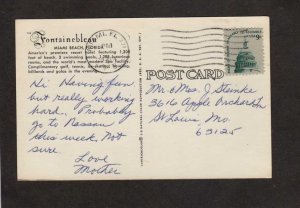 Fontainebleau
MIAMI BEACH, FLORIDA
America's premiere resort hotel featuring 1,200
feet of beach, 2 swimming pools, 1,200 luxurious
rooms, and the world's most modern Spa facility.
Complimentary golf, tennis,
billiards and galas in the evening.
POST CARD
Hi Having fun,
but really working
hard. Probably
go to Nassau
this week. Not
sure.
Love
Mother
Mr & Mrs. J. Steinke
3616 Apple Orchard Ct
St Louis, Mo.
63125